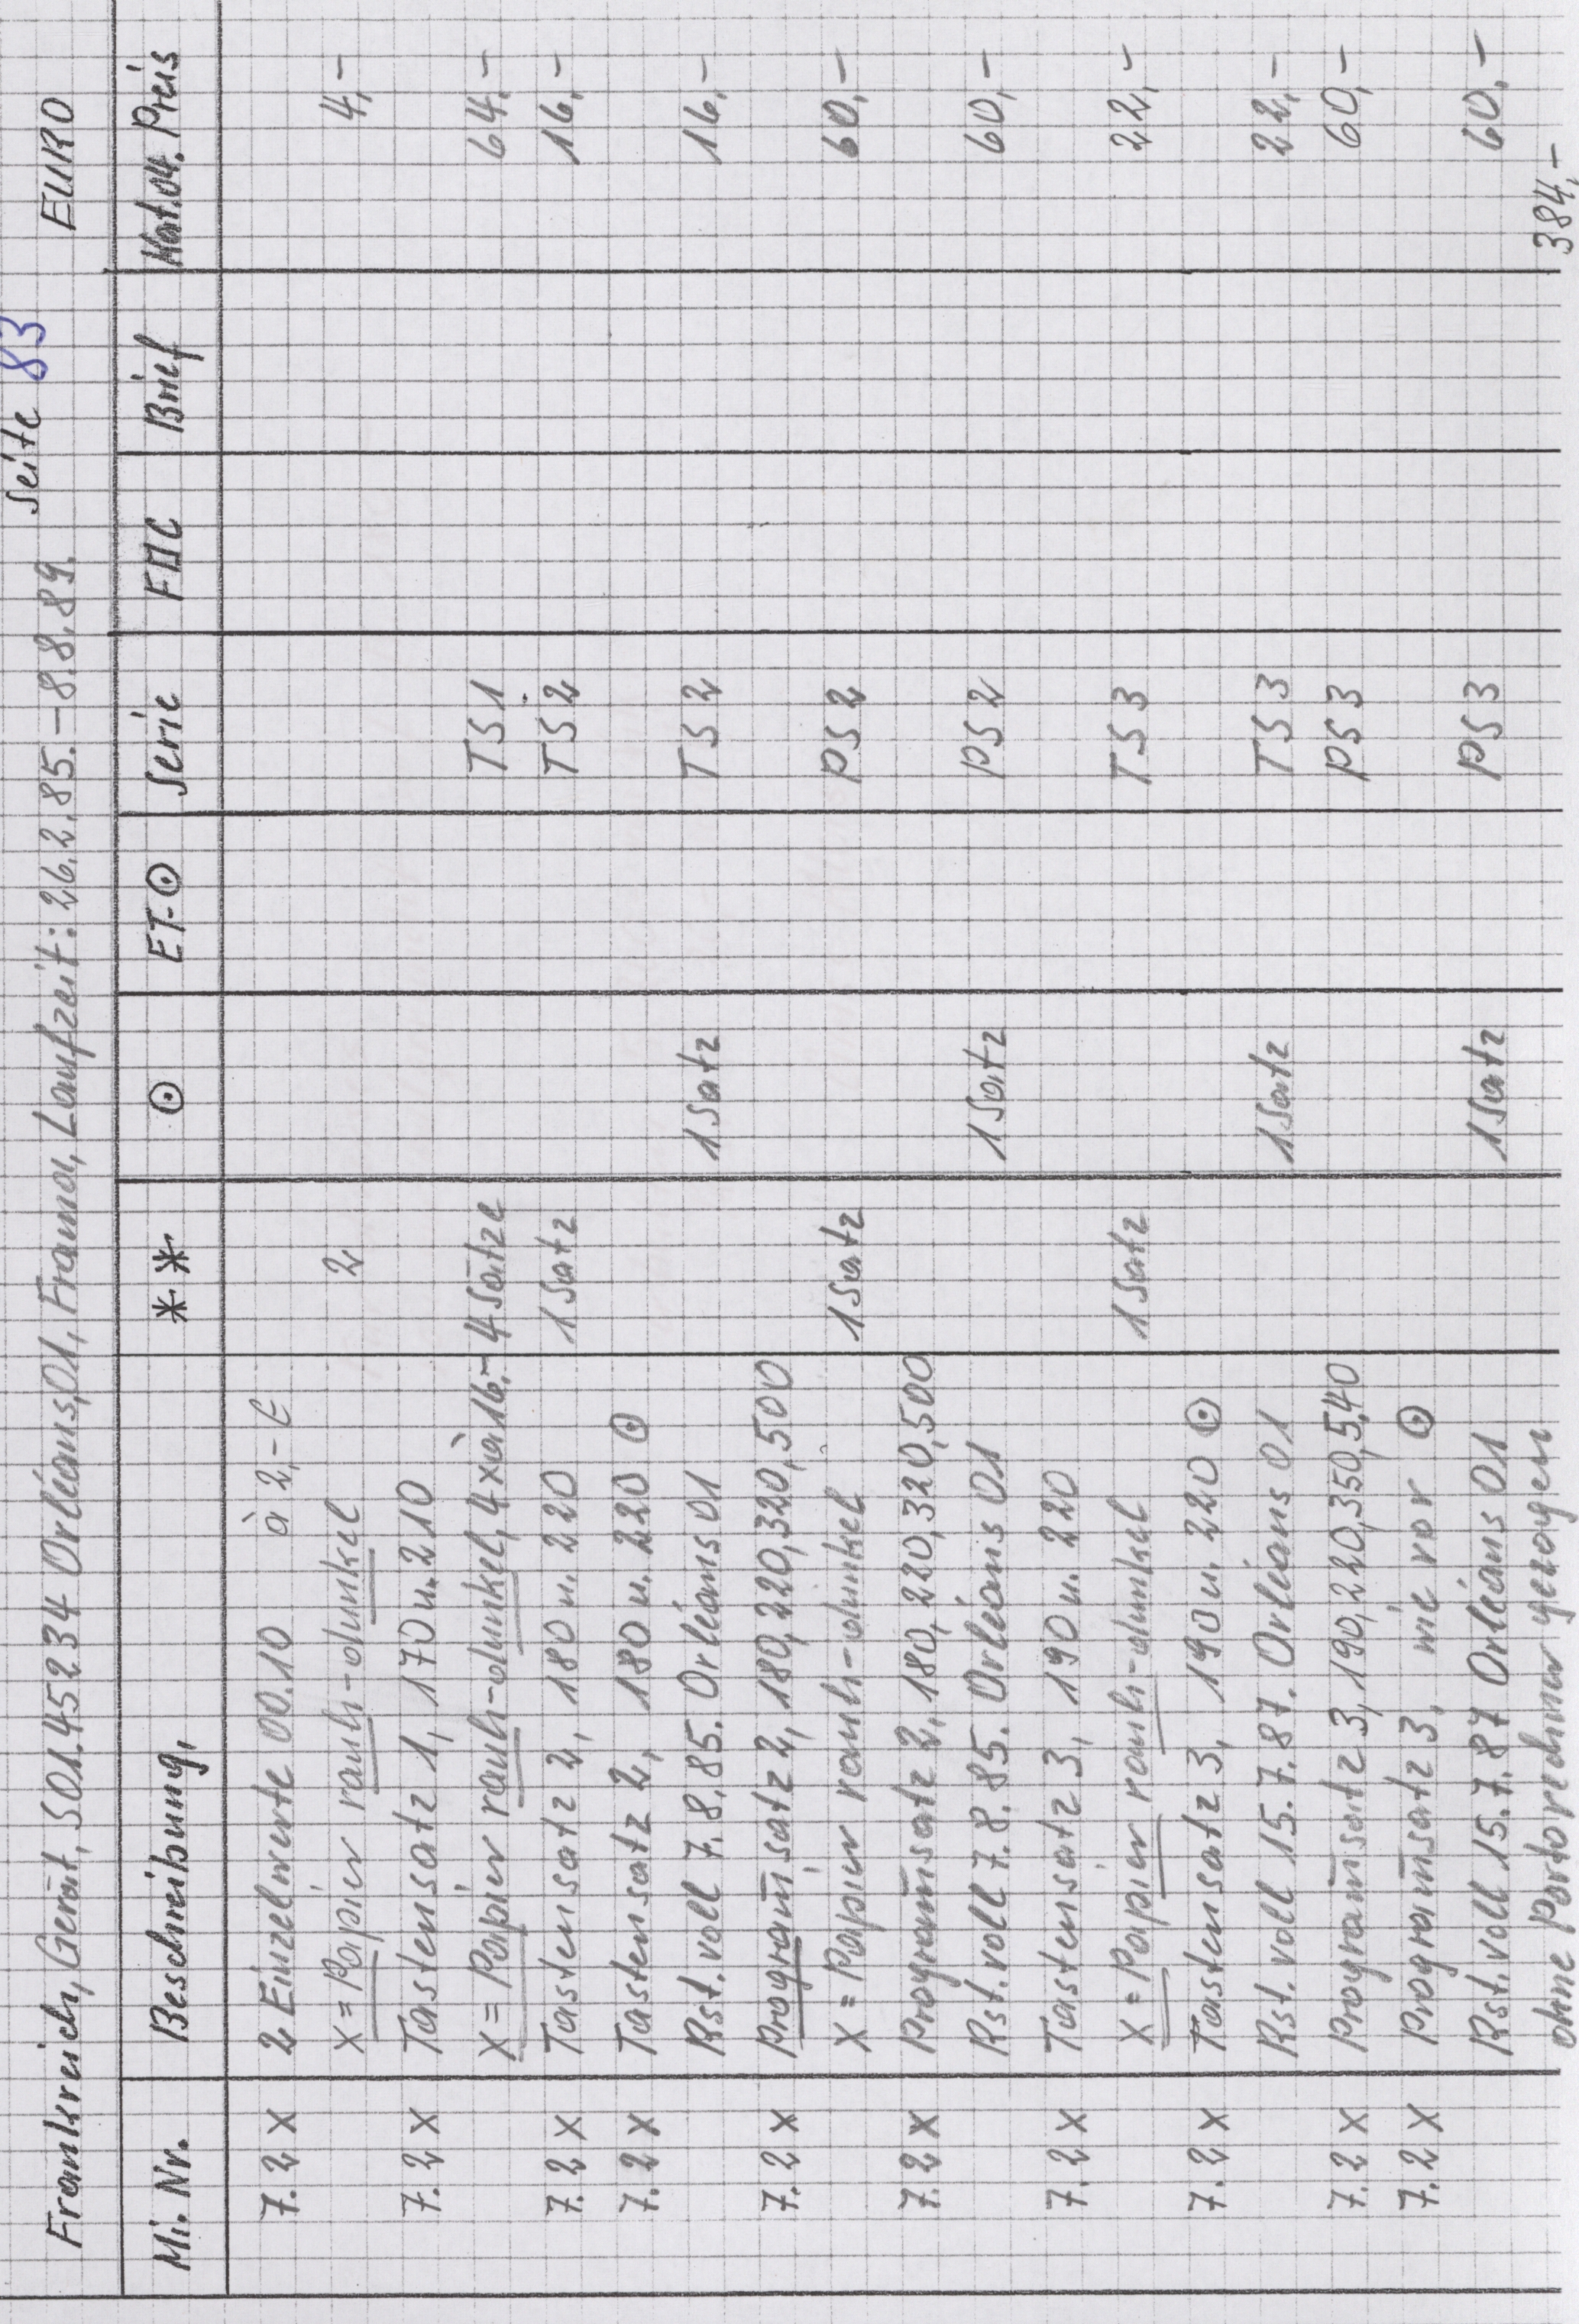 Seite 83
Frankreich, Gerät, 501.45234 Orléans,01, Frama, Laufzeit: 26.2.85.-8.8.89. EURO
Mi.Nr. Beschreibung, ** ⊙ ET-⊙ Serie FDC Brief Kat.04. Preis
7.2 X 2 Einzelwerte 00.10 à 2,- €
X = Papier rauh-dunkel 2 4,-
7.2 X Tastensatz 1, 170 u. 210
X = Papier rauh-dunkel, 4 x à 16,- 4 Sätze TS 1 64,-
7.2 X Tastensatz 2, 180 u. 220 1 Satz TS 2 16,-
7.2 X Tastensatz 2, 180 u. 220 ⊙
Rst. voll 7.8.85. Orléans 01 1 Satz TS 2 16,-
7.2 X Programmsatz 2, 180, 220, 320, 500
X = Papier rauh-dunkel 1 Satz PS 2 60,-
7.2 X Programmsatz 2, 180, 220, 320, 500
Rst. voll 7.8.85. Orléans 01 1 Satz PS 2 60,-
7.2 X Tastensatz 3, 190 u. 220
X = Papier rauh-dunkel 1 Satz TS 3 22,-
7.2 X Tastensatz 3, 190 u. 220 ⊙
Rst. voll 15.7.87. Orléans 01 1 Satz TS 3 22,-
7.2 X Programmsatz 3, 190, 220, 350, 540 PS 3 60,-
7.2 X Programmsatz 3, wie vor ⊙
Rst. voll 15.7.87 Orléans 01 1 Satz PS 3 60,-
ohne Portorechner gezogen 384,-